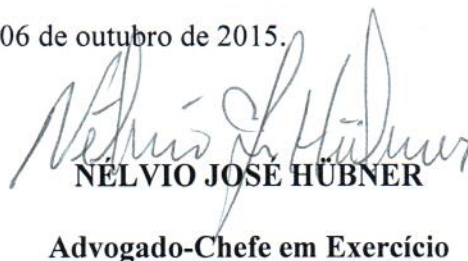 06 de outubro de 2015.
Nélvio J. Hübner
NÉLVIO JOSÉ HÜBNER
Advogado-Chefe em Exercício